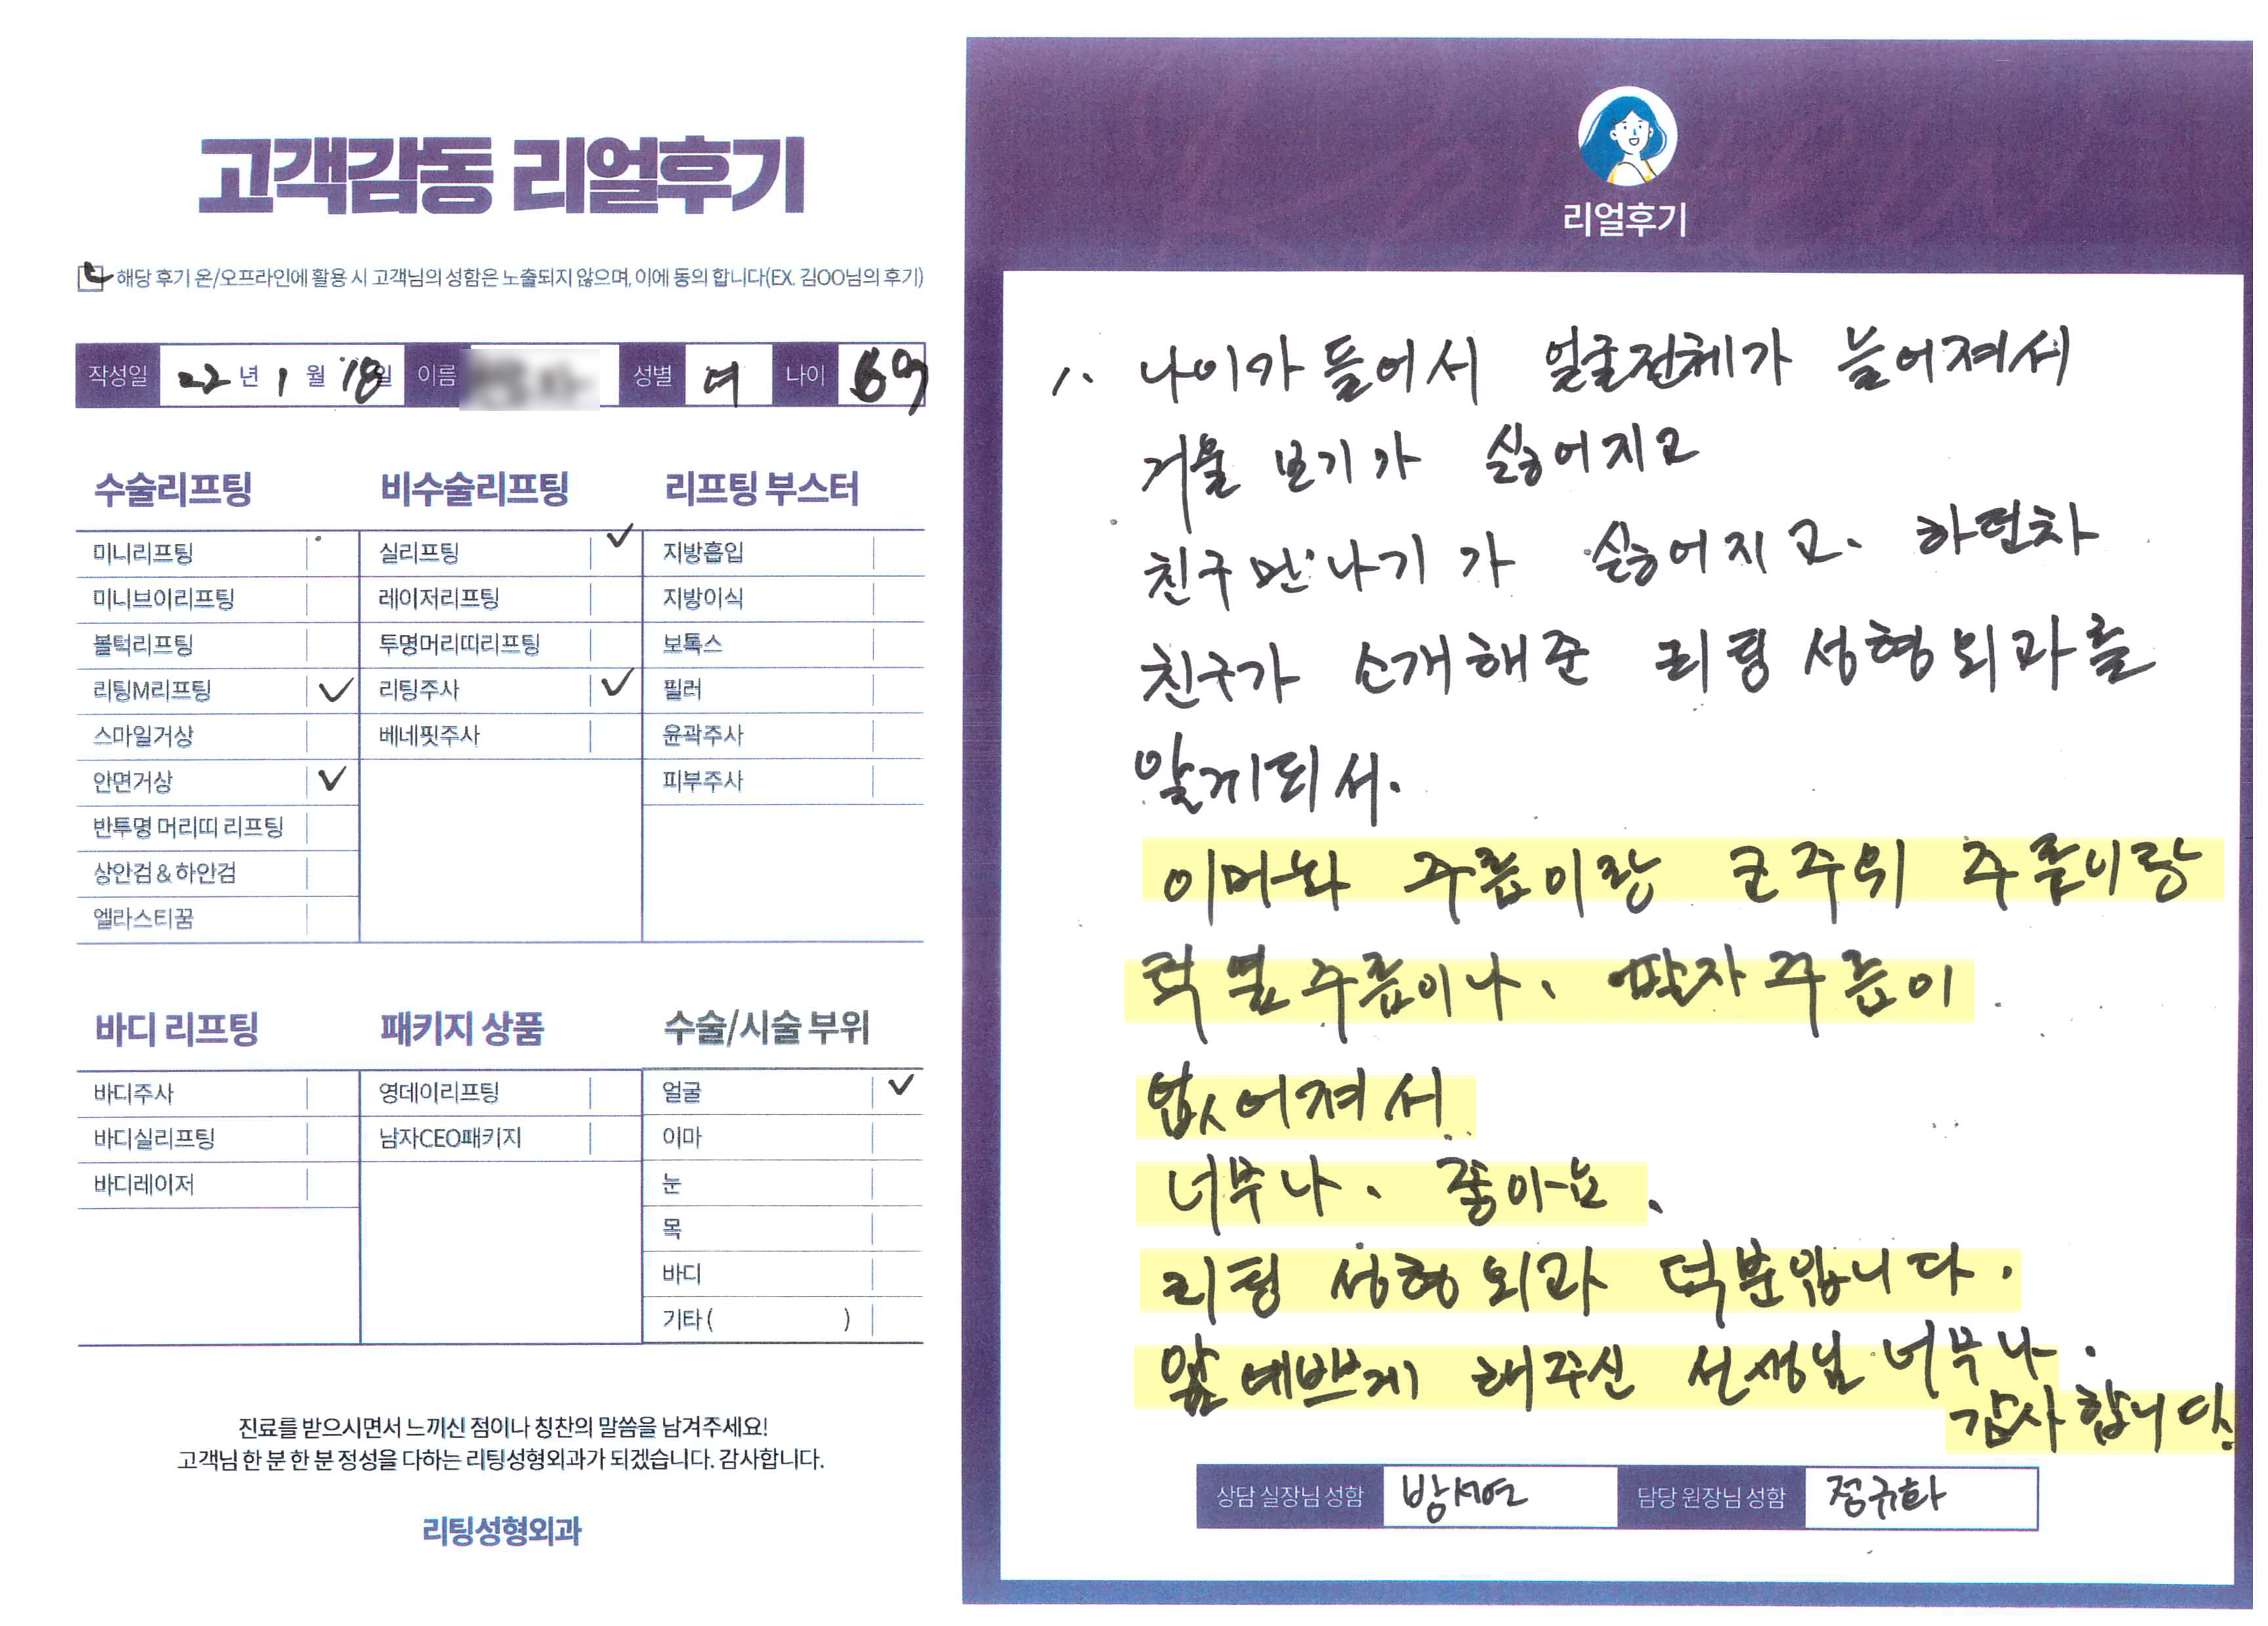 고객감동 리얼후기
해당 후기 온/오프라인에 활용 시 고객님의 성함은 노출되지 않으며, 이에 동의 합니다(EX. 김OO님의 후기)
작성일 22년 1월 18일 이름 성별 여 나이 69
수술리프팅
미니리프팅
미니브이리프팅
볼턱리프팅
리팅M리프팅 ✓
스마일거상
안면거상 ✓
반투명 머리띠 리프팅
상안검 & 하안검
엘라스티꿈
비수술리프팅
실리프팅 ✓
레이저리프팅
투명머리띠리프팅
리팅주사 ✓
베네핏주사
리프팅 부스터
지방흡입
지방이식
보톡스
필러
윤곽주사
피부주사
바디 리프팅
바디주사
바디실리프팅
바디레이저
패키지 상품
영데이리프팅
남자CEO패키지
수술/시술 부위
얼굴 ✓
이마
눈
목
바디
기타 ( )
진료를 받으시면서 느끼신 점이나 칭찬의 말씀을 남겨주세요!
고객님 한 분 한 분 정성을 다하는 리팅성형외과가 되겠습니다. 감사합니다.
리팅성형외과
리얼후기
1. 나이가 들어서 얼굴전체가 늘어져서
거울 보기가 싫어지고
친구 만나기가 싫어지고. 하던차
친구가 소개해준 리팅성형외과를
알게되서.
이마와 주름이랑 큰주위 주름이랑
턱 옆주름이나. 팔자주름이
없어져서
너무나. 좋아요.
리팅 성형외과 덕분입니다.
예쁘게 해주신 선생님 너무나.
감사합니다!
상담 실장님 성함 방서연 담당 원장님 성함 정규화